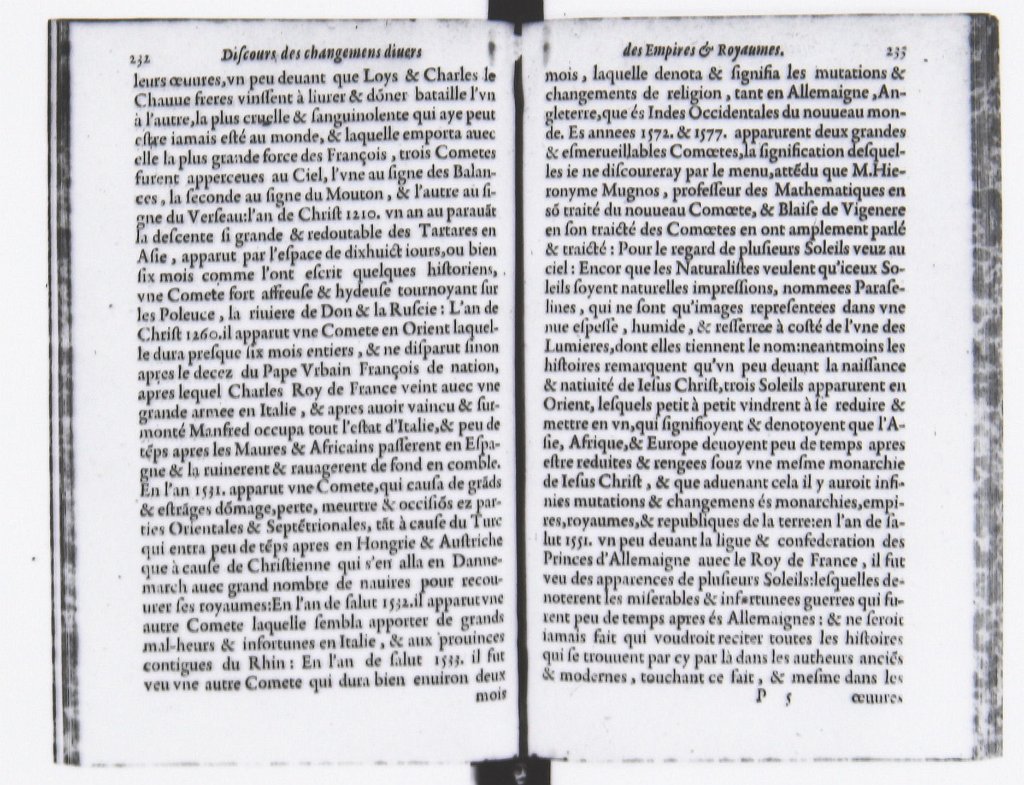 232 Diſcours des changemens diuers
leurs œuures,vn peu deuant que Loys & Charles le
Chauue freres vinſſent à liurer & dõner bataille l'vn
à l'autre,la plus cruelle & ſanguinolente qui aye peut
eſtre iamais eſté au monde, & laquelle emporta auec
elle la plus grande force des François , trois Cometes
furent apperceues au Ciel, l'vne au ſigne des Balan-
ces , la ſeconde au ſigne du Mouton , & l'autre au ſi-
gne du Verſeau:l'an de Chriſt 1210. vn an au parauãt
la deſcente ſi grande & redoutable des Tartares en
Aſie , apparut par l'eſpace de dixhuict iours,ou bien
ſix mois comme l'ont eſcrit quelques hiſtoriens,
vne Comete fort affreuſe & hydeuſe tournoyant ſur
les Poleuce , la riuiere de Don & la Ruſcie : L'an de
Chriſt 1260.il apparut vne Comete en Orient laquel-
le dura preſque ſix mois entiers , & ne diſparut ſinon
apres le decez du Pape Vrbain François de nation,
apres lequel Charles Roy de France veint auec vne
grande armee en Italie , & apres auoir vaincu & ſur-
monté Manfred occupa tout l'eſtat d'Italie,& peu de
tẽps apres les Maures & Africains paſſerent en Eſpa-
gne & la ruinerent & rauagerent de fond en comble.
En l'an 1531. apparut vne Comete,qui cauſa de grãds
& eſtrãges dõmage,perte, meurtre & occiſiõs ez par-
ties Orientales & Septẽtrionales, tãt à cauſe du Turc
qui entra peu de tẽps apres en Hongrie & Auſtriche
que à cauſe de Chriſtienne qui s'en alla en Danne-
march auec grand nombre de nauires pour recou-
urer ſes royaumes:En l'an de ſalut 1532.il apparut vne
autre Comete laquelle ſembla apporter de grands
mal-heurs & infortunes en Italie , & aux prouinces
contigues du Rhin : En l'an de ſalut 1533. il fut
veu vne autre Comete qui dura bien enuiron deux
mois
des Empires & Royaumes. 233
mois , laquelle denota & ſignifia les mutations &
changements de religion , tant en Allemaigne ,An-
gleterre,que és Indes Occidentales du nouueau mon-
de. Es annees 1572. & 1577. apparurent deux grandes
& eſmerueillables Comœtes,la ſignification deſquel-
les ie ne diſcoureray par le menu,attẽdu que M.Hie-
ronyme Mugnos , profeſſeur des Mathematiques en
sõ traité du nouueau Comœte, & Blaiſe de Vigenere
en ſon traicté des Comœtes en ont amplement parlé
& traicté : Pour le regard de pluſieurs Soleils veuz au
ciel : Encor que les Naturaliſtes veulent qu'iceux So-
leils ſoyent naturelles impreſſions, nommees Paraſe-
lines , qui ne ſont qu'images repreſentees dans vne
nue eſpeſſe , humide , & reſſerree à coſté de l'vne des
Lumieres,dont elles tiennent le nom:neantmoins les
hiſtoires remarquent qu'vn peu deuant la naiſſance
& natiuité de Ieſus Chriſt,trois Soleils apparurent en
Orient, leſquels petit à petit vindrent à ſe reduire &
mettre en vn,qui ſignifioyent & denotoyent que l'A-
ſie, Afrique,& Europe deuoyent peu de temps apres
eſtre reduites & rengees ſouz vne meſme monarchie
de Ieſus Chriſt , & que aduenant cela il y auroit infi-
nies mutations & changemens és monarchies,empi-
res,royaumes,& republiques de la terre:en l'an de ſa-
lut 1551. vn peu deuant la ligue & confederation des
Princes d'Allemaigne auec le Roy de France , il fut
veu des apparences de pluſieurs Soleils:leſquelles de-
noterent les miſerables & infortunees guerres qui fu-
rent peu de temps apres és Allemaignes : & ne ſeroit
iamais fait qui voudroit reciter toutes les hiſtoires
qui ſe trouuent par cy par là dans les autheurs anciẽs
& modernes , touchant ce fait , & meſme dans les
P 5 œuures